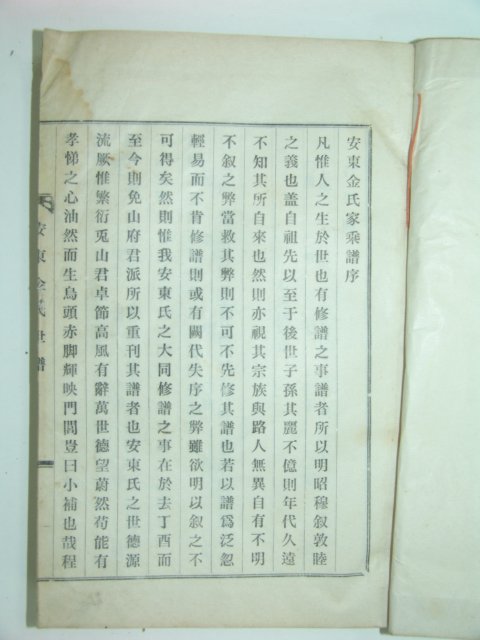 安東金氏家乘譜序
凡惟人之生於世也有修譜之事譜者所以明昭穆叙敦睦
之義也盖自祖先以至于後世子孫其麗不億則年代久遠
不知其所自來也然則亦視其宗族與路人無異自有不明
不叙之弊當救其弊則不可不先修其譜也若以譜爲泛忽
輕易而不肯修譜則或有闕代失序之弊雖欲明以叙之不
可得矣然則惟我安東氏之大同修譜之事在於去丁酉而
至今則免山府君派所以重刊其譜者也安東氏之世德源
流厥惟繁衍兎山君卓節高風有辭萬世德望蔚然苟能有
孝悌之心油然而生烏頭赤脚輝映門閭豈曰小補也哉程
安東金氏世譜